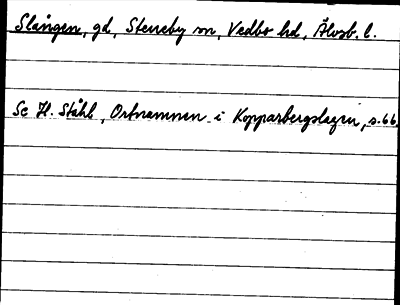 Slången, gd, Steneby sn, Vedbo hd, Älvsb. l.
Se H. Ståhl, Ortnamnen i Kopparbergslagen, s. 66.